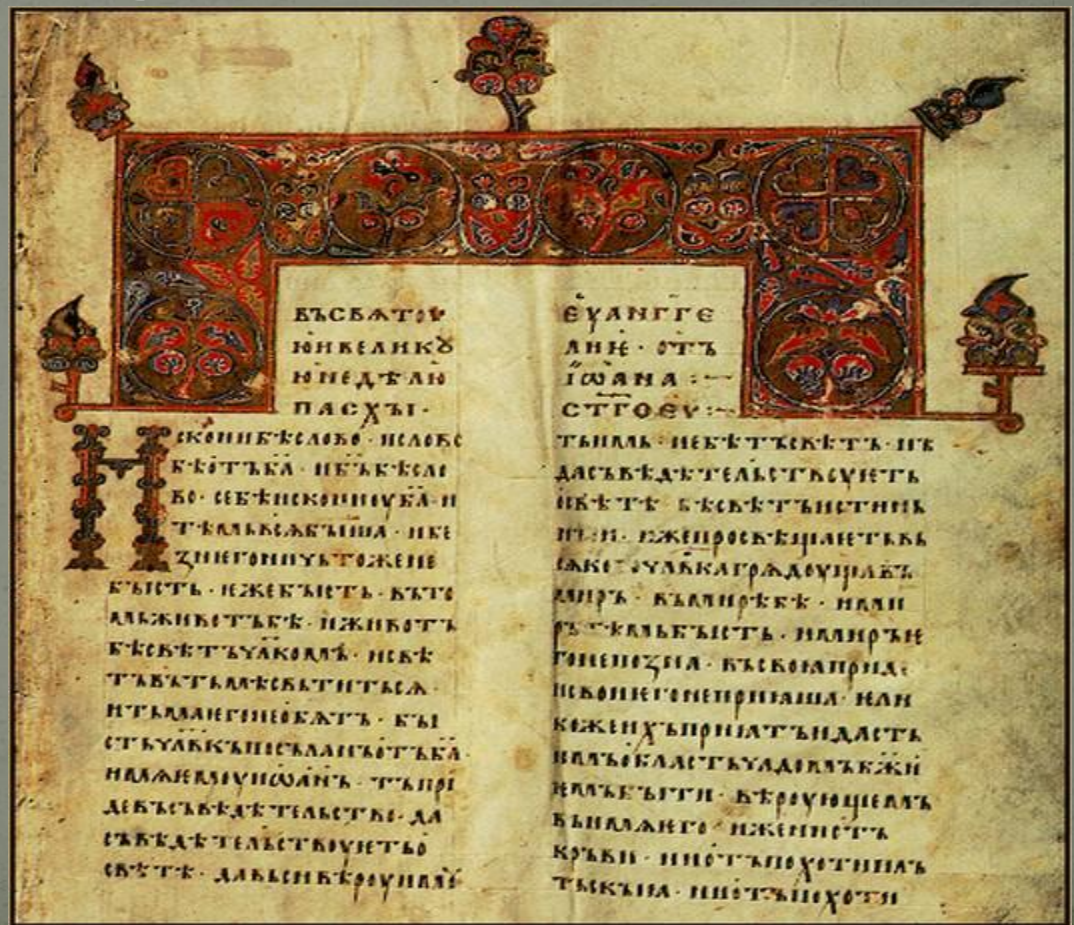 ВЪСВѦТОУ
ЮИВЕЛИКꙋ
ЮНЕДѢЛЮ
ПАСХЫ·
Искониbѣслово · ислово
бѣотъба҃ · ибъ҃бѣсло
во · себѣискониоуба҃ · и
тѣмьвьсѧбыша · ибе
ꙁнѥгоничьтожене
бысть · ежебысть · въто
мьживотъбѣ · иживотъ
бѣсвѣтъчл҃комъ · исвѣ
тъвътьмѣсвьтитьсѧ ·
итьмаѥгонеобѧтъ · бы
стьчл҃вкъпосъланъотъба҃ ·
имѧѥмоуиѡанъ · тъпри
девъсъвѣдѣтельство · да
съвѣдѣтельствоуѥтьо
свѣтѣ · давьсивѣроуимꙋть
ЕУАНГГЕ
ЛИѤ · ОТЪ
ІѠАНА :~
СТГОЕУ :~
тъимь · небѣтъсвѣтъ · нъ
дасъвѣдѣтельствоуѥть
освѣтѣ · бѣсвѣтъистинь
ныи · ижепросвѣщаѥтьвь
сѧкогочл҃вкагрѧдоущавъ
миръ · вьмирѣбѣ · ими
рътѣмьбысть · имиръѥ
гонепоꙁна · въсвоꙗприде
исвоиѥгонеприꙗша · ѥли
кожеихъприꙗтъидасть
имъобластьчадомъбж҃и
ѥмъбыти · вѣроующемъ
въимѧѥго · иженеотъ
кръви · ниотъпохотипль
тьскыꙗ · ниотъпохоти